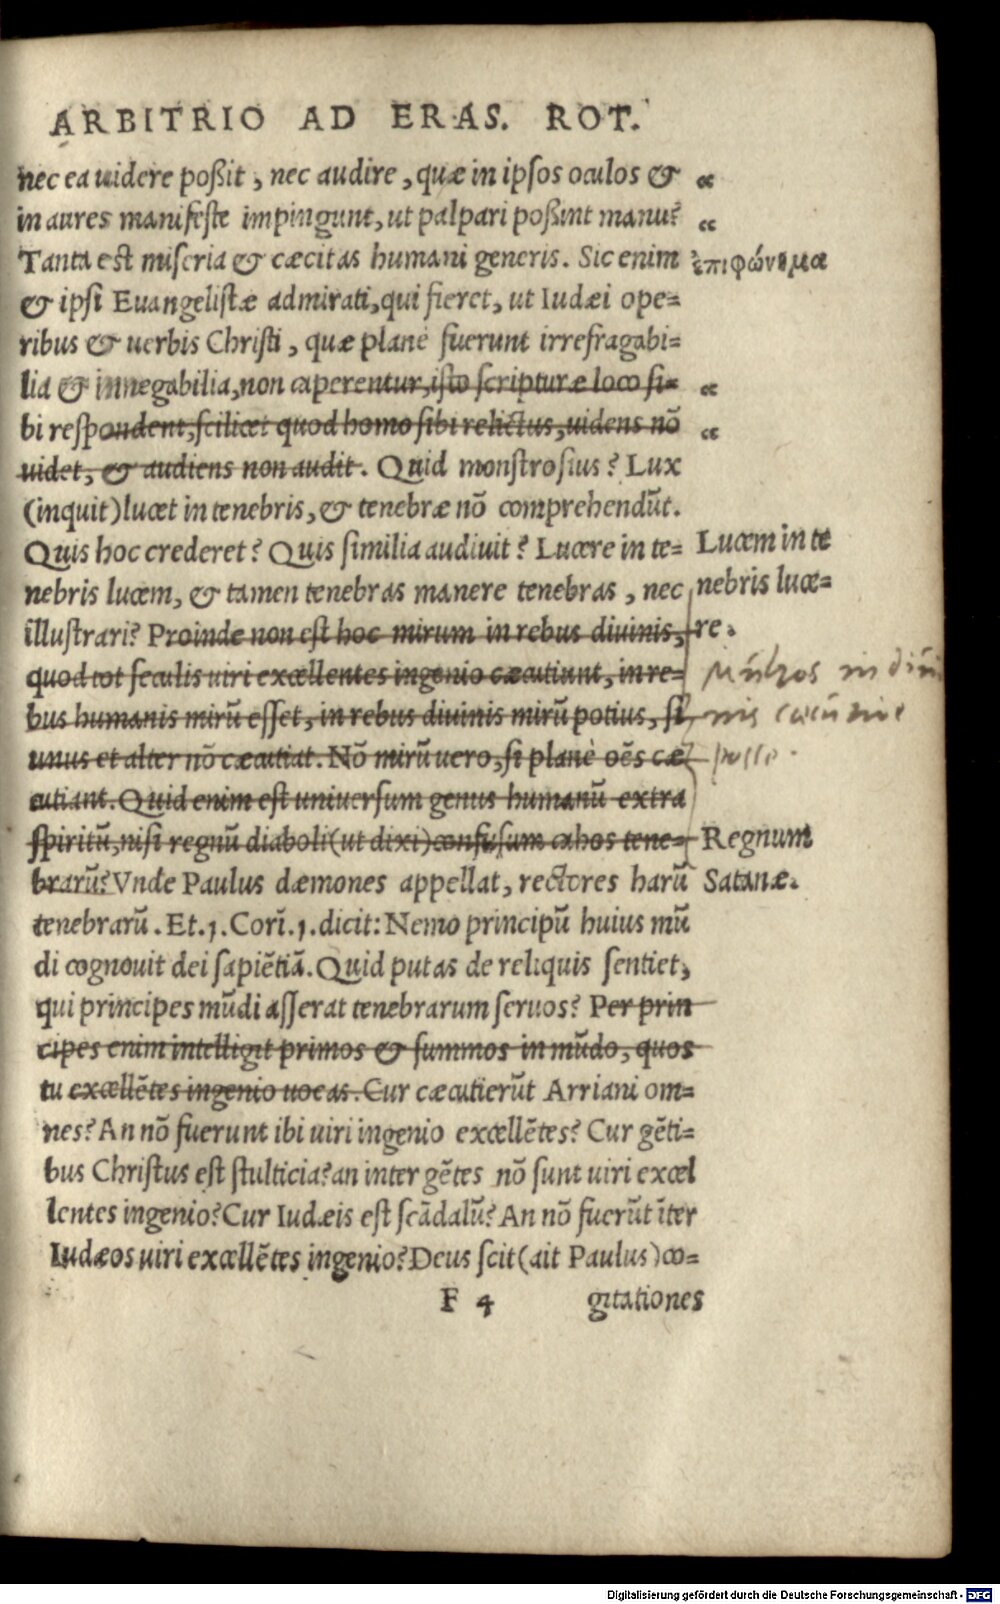 ARBITRIO AD ERAS. ROT.
nec ea uidere poßit, nec audire, quæ in ipsos oculos &
in aures manifeste impingunt, ut palpari poßint manu?
Tanta est miseria & cæcitas humani generis. Sic enim
ἐπιφώνημα
& ipsi Euangelistæ admirati, qui fieret, ut Iudæi ope=
ribus & uerbis Christi, quæ planè fuerunt irrefragabi=
lia & innegabilia, non caperentur, isto scripturæ loco si=
bi respondent, scilicet quod homo sibi relictus, uidens nō
uidet, & audiens non audit. Quid monstrosius? Lux
(inquit) lucet in tenebris, & tenebræ nō comprehendūt.
Quis hoc crederet? Quis similia audiuit? Lucere in te=
nebris lucem, & tamen tenebras manere tenebras, nec
illustrari? Proinde non est hoc mirum in rebus diuinis,
Lucem in te
nebris luce=
re.
quod tot seculis uiri excellentes ingenio cæcutiunt, in re=
bus humanis mirū esset, in rebus diuinis mirū potius, si
unus et alter nō cæcutiat. Nō mirū uero, si planè oēs cæ
cutiant. Quid enim est uniuersum genus humanū extra
spiritū, nisi regnū diaboli (ut dixi) confusum cahos tene=
brarū? Vnde Paulus dæmones appellat, rectores harū
Regnum
Satanæ.
tenebrarū. Et.1. Corī.1. dicit: Nemo principū huius mū
di cognouit dei sapiētiā. Quid putas de reliquis sentiet,
qui principes mūdi asserat tenebrarum seruos? Per prin
cipes enim intelligit primos & summos in mūdo, quos
tu excellētes ingenio uocas. Cur cæcutierūt Arriani om=
nes? An nō fuerunt ibi uiri ingenio excellētes? Cur gēti=
bus Christus est stulticia? an inter gētes nō sunt uiri excel
lentes ingenio? Cur Iudæis est scādalū? An nō fuerūt īter
Iudæos uiri excellētes ingenio? Deus scit (ait Paulus) co=
F 4 gitationes
Digitalisierung gefördert durch die Deutsche Forschungsgemeinschaft - DFG